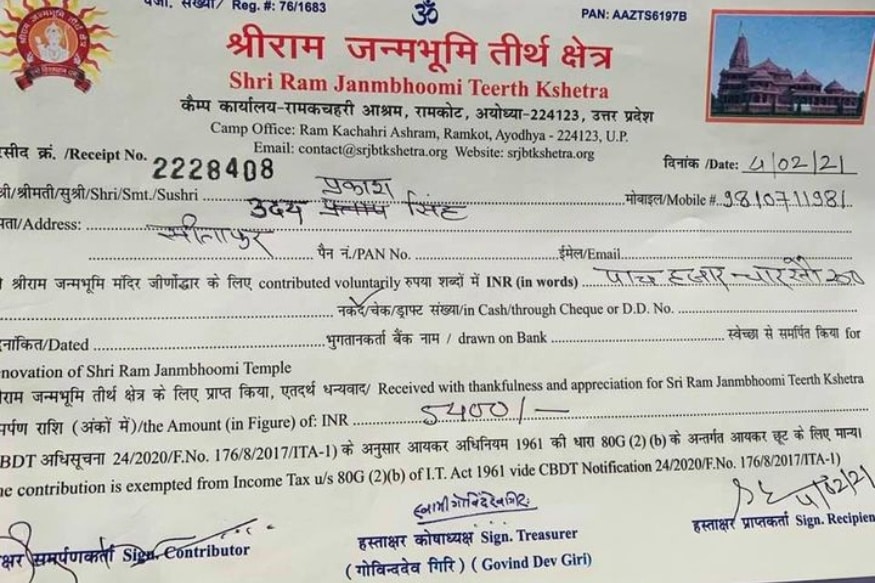 पंजी. संख्या/ Reg. #: 76/1683
ॐ
PAN: AAZTS6197B
श्रीराम जन्मभूमि तीर्थ क्षेत्र
Shri Ram Janmbhoomi Teerth Kshetra
कैम्प कार्यालय-रामकचहरी आश्रम, रामकोट, अयोध्या-224123, उत्तर प्रदेश
Camp Office: Ram Kachahri Ashram, Ramkot, Ayodhya - 224123, U.P.
Email: contact@srjbtkshetra.org Website: srjbtkshetra.org
रसीद क्रं. /Receipt No. 2228408
दिनांक /Date: 4/02/21
श्री/श्रीमती/सुश्री/Shri/Smt./Sushri उदय प्रकाश सिंह
मोबाइल/Mobile # 9810711981
पता/Address: सीतापुर
पैन नं./PAN No. ईमेल/Email
श्रीराम जन्मभूमि मंदिर जीर्णोद्धार के लिए contributed voluntarily रुपया शब्दों में INR (in words) पाच हजार चारसौ
नकद/चेक/ड्राफ्ट संख्या/in Cash/through Cheque or D.D. No.
दिनांकित/Dated भुगतानकर्ता बैंक नाम / drawn on Bank स्वेच्छा से समर्पित किया for
Renovation of Shri Ram Janmbhoomi Temple
श्रीराम जन्मभूमि तीर्थ क्षेत्र के लिए प्राप्त किया, एतदर्थ धन्यवाद/ Received with thankfulness and appreciation for Sri Ram Janmbhoomi Teerth Kshetra
समर्पण राशि (अंकों में)/the Amount (in Figure) of: INR 5400/-
(CBDT अधिसूचना 24/2020/F.No. 176/8/2017/ITA-1) के अनुसार आयकर अधिनियम 1961 की धारा 80G (2) (b) के अन्तर्गत आयकर छूट के लिए मान्य।
The contribution is exempted from Income Tax u/s 80G (2)(b) of I.T. Act 1961 vide CBDT Notification 24/2020/F.No. 176/8/2017/ITA-1)
स्वामी गोविंददेवगिरि
4/02/21
हस्ताक्षर समर्पणकर्ता Sign. Contributor
हस्ताक्षर कोषाध्यक्ष Sign. Treasurer
हस्ताक्षर प्राप्तकर्ता Sign. Recipien
(गोविन्ददेव गिरि) (Govind Dev Giri)